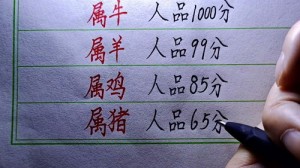 属牛 人品1000分
属羊 人品99分
属鸡 人品85分
属猪 人品65分